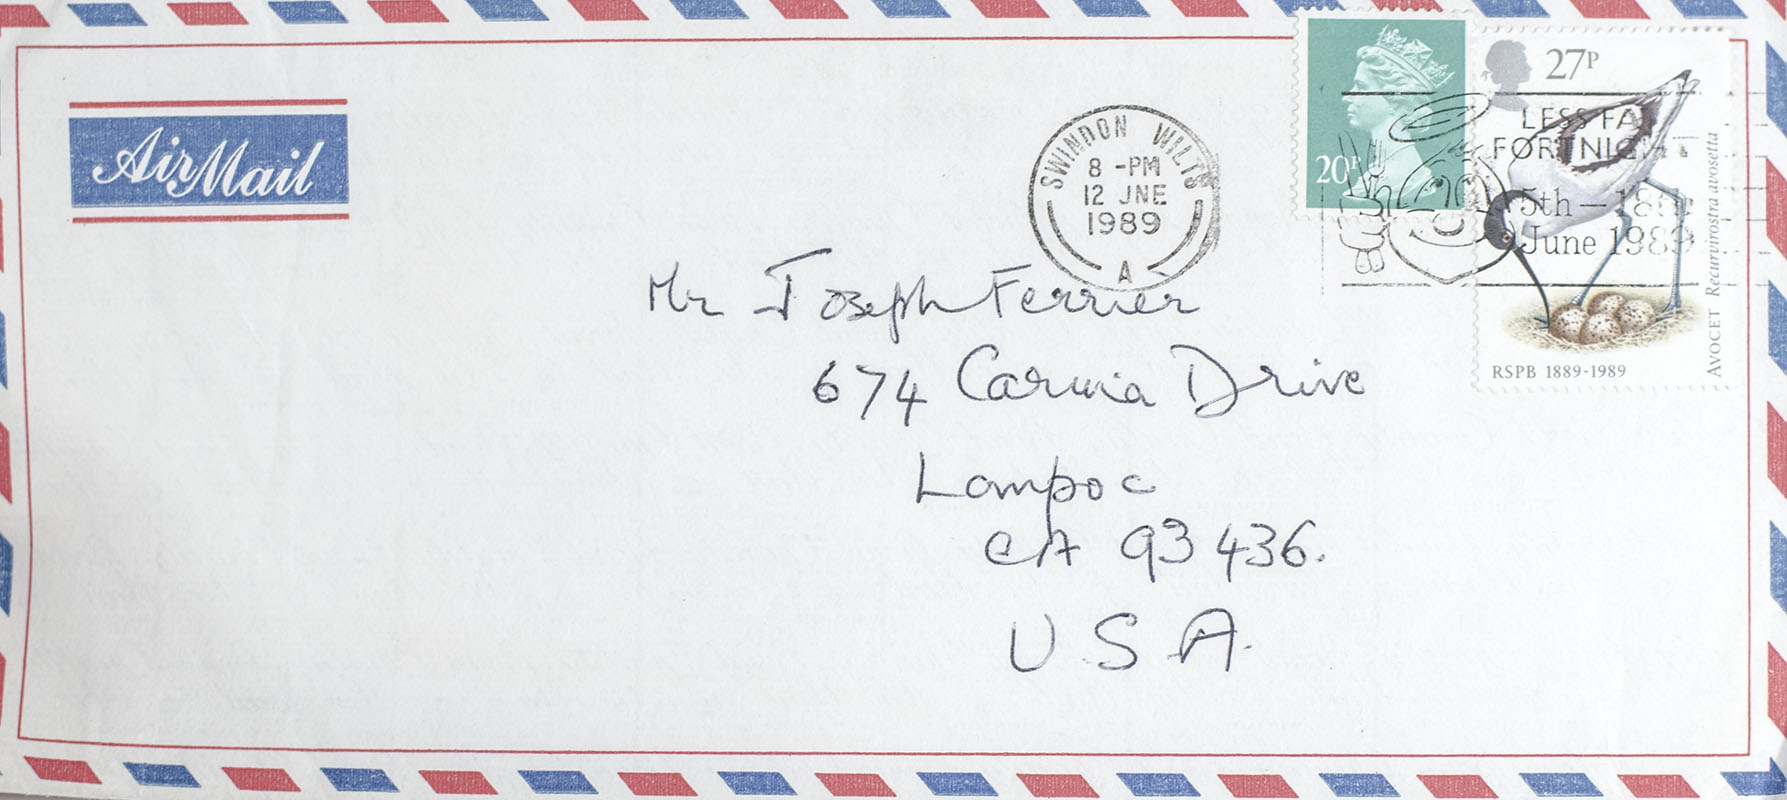 Air Mail
SWINDON WILTS
8 -PM
12 JNE
1989
A
20P
27P
LESS FAT
FORTNIGHT
5th – 18th
June 1989
AVOCET Recurvirostra avosetta
RSPB 1889-1989
Mr Joseph Ferrier
674 Carina Drive
Lompoc
CA 93436.
U.S.A.